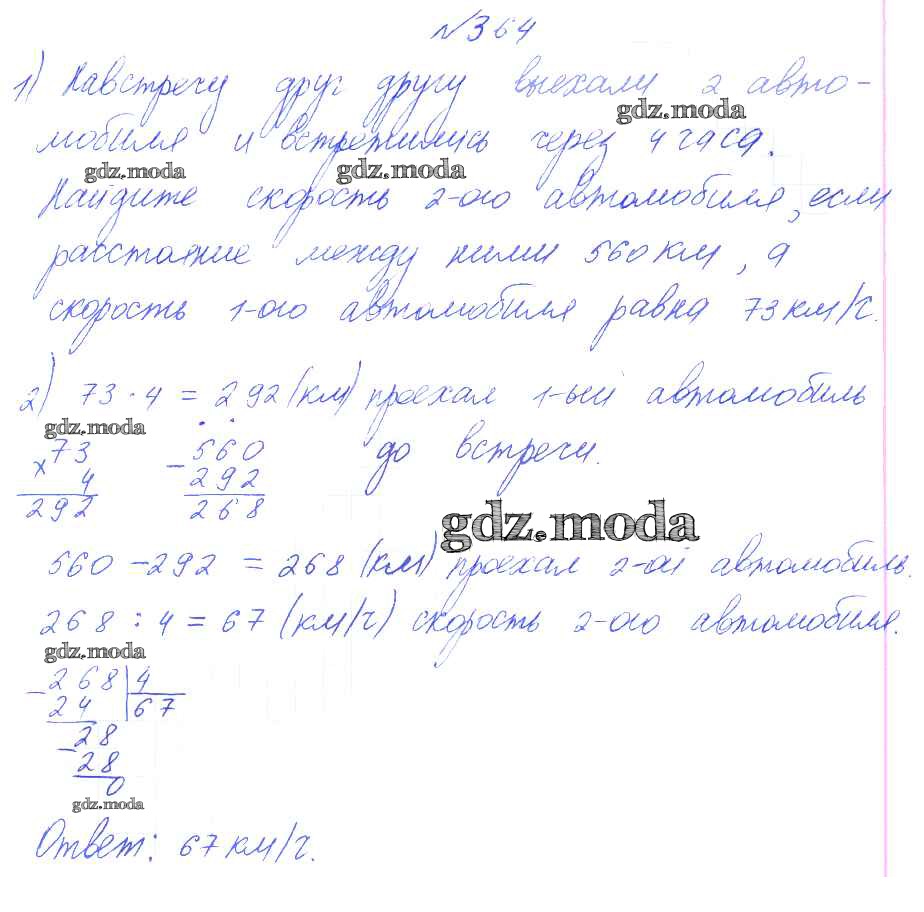 №364
1) Навстречу друг другу выехали 2 авто-
gdz.moda
мобиля и встретились через 4 часа.
gdz.moda gdz.moda
Найдите скорость 2-ого автомобиля, если
расстояние между ними 560 км, а
скорость 1-ого автомобиля равна 73 км/ч.
2) 73 · 4 = 292 (км) проехал 1-ый автомобиль
gdz.moda
до встречи.
× 73
4
292
− 560
292
268
gdz.moda
560 − 292 = 268 (км) проехал 2-ой автомобиль.
268 : 4 = 67 (км/ч) скорость 2-ого автомобиля.
gdz.moda
− 268 | 4
24 | 67
− 28
28
0
gdz.moda
Ответ: 67 км/ч.